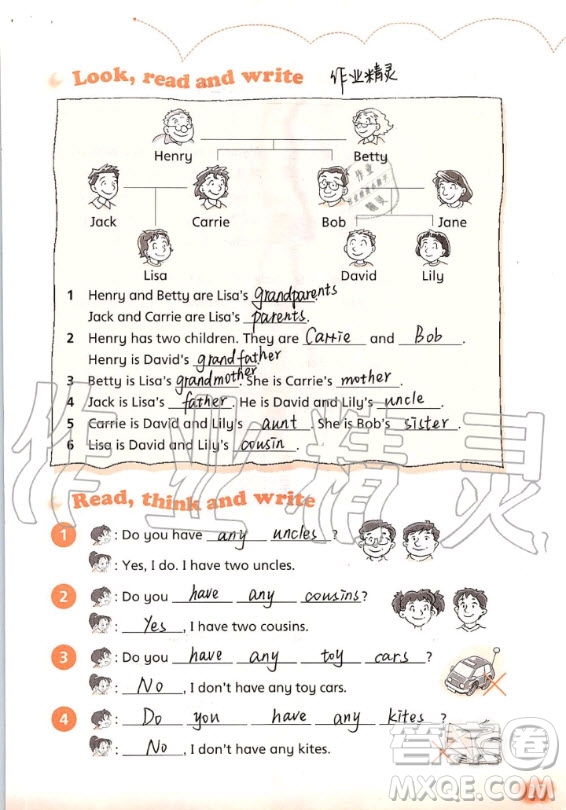 Look, read and write 作业精灵
Henry Betty
Jack Carrie Bob Jane
Lisa David Lily
1 Henry and Betty are Lisa's grandparents.
Jack and Carrie are Lisa's parents.
2 Henry has two children. They are Carrie and Bob.
Henry is David's grandfather
3 Betty is Lisa's grandmother. She is Carrie's mother.
4 Jack is Lisa's father. He is David and Lily's uncle.
5 Carrie is David and Lily's aunt. She is Bob's sister.
6 Lisa is David and Lily's cousin.
作业精灵
Read, think and write
1 : Do you have any uncles ?
: Yes, I do. I have two uncles.
2 : Do you have any cousins?
: Yes, I have two cousins.
3 : Do you have any toy cars ?
: No, I don't have any toy cars.
4 : Do you have any kites ?
: No, I don't have any kites.
答案圈
MXQE.COM